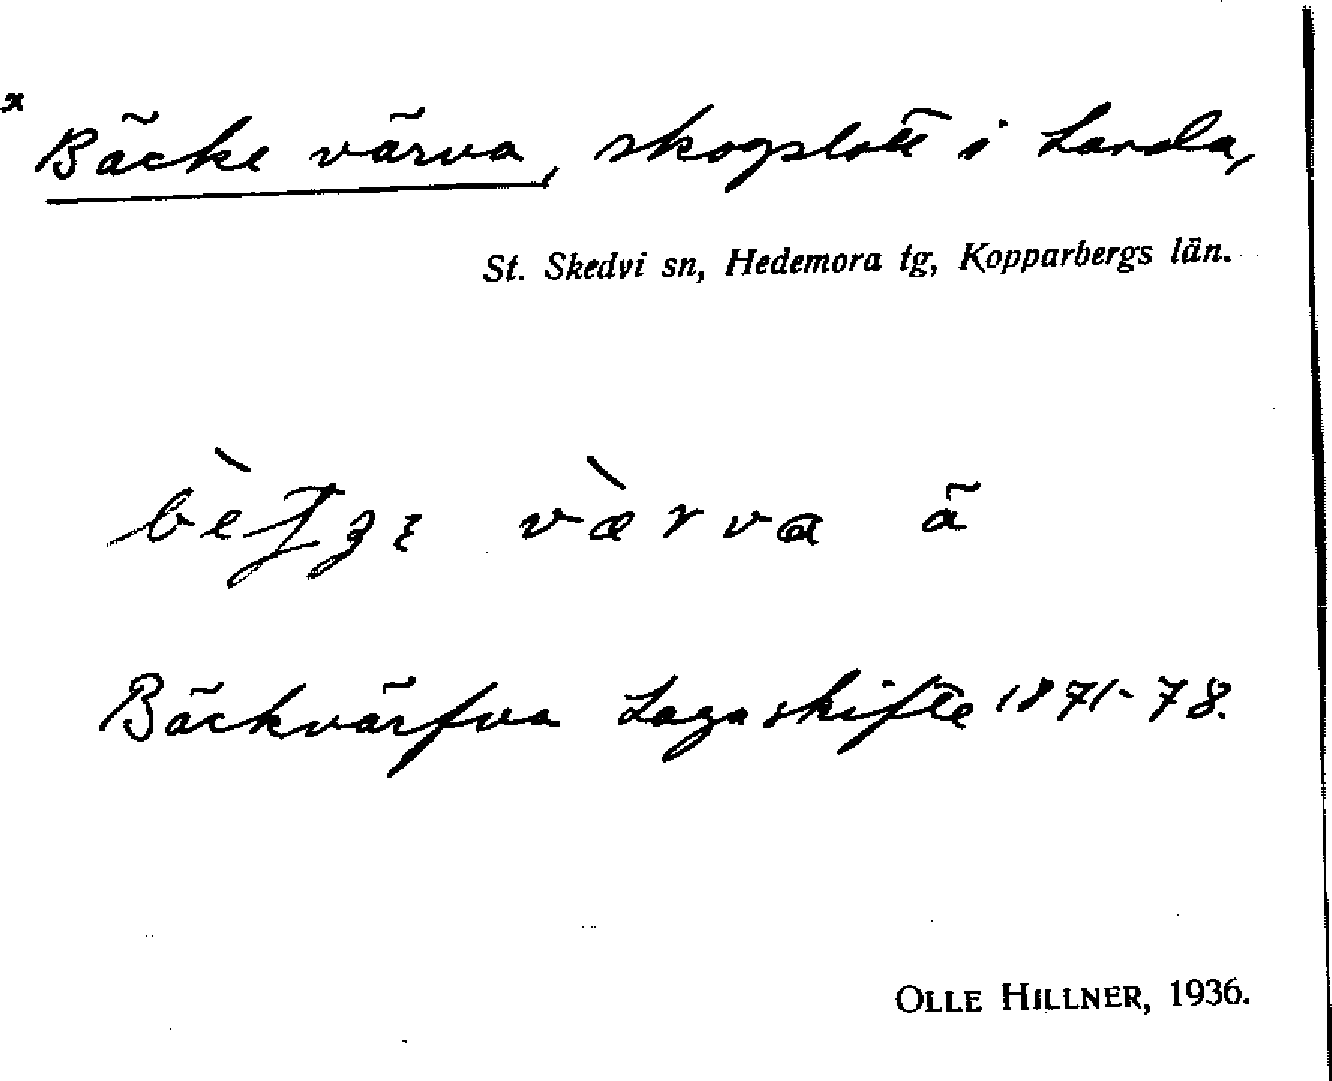 * Bäcke värva, skogslott i Landa,
St. Skedvi sn, Hedemora tg, Kopparbergs län.
värva ä
Bäckvärfva Laga skifte 1871-78.
OLLE HILLNER, 1936.